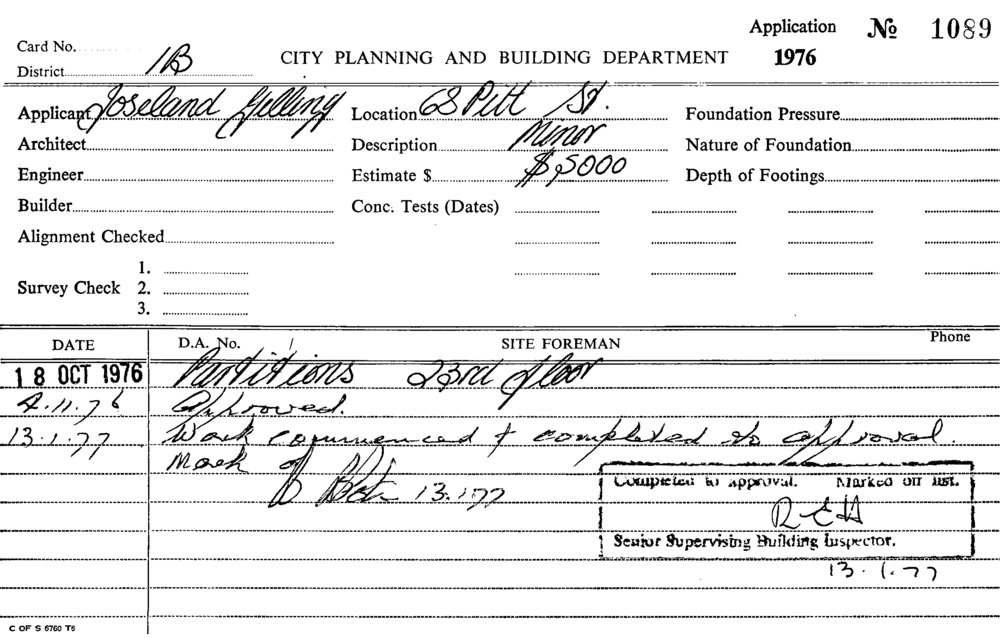 Application No 1089
Card No.
District 1B
CITY PLANNING AND BUILDING DEPARTMENT 1976
Applicant Joseland Gilling Location 68 Pitt St. Foundation Pressure
Architect Description Minor Nature of Foundation
Engineer Estimate $ $5000 Depth of Footings
Builder Conc. Tests (Dates)
Alignment Checked
1.
Survey Check 2.
3.
DATE D.A. No. / SITE FOREMAN Phone
18 OCT 1976 Partitions 23rd floor
4.11.76 Approved.
13.1.77 Work commenced & completed to approval.
Mark off 13.1.77
Completed to approval. Marked off list.
REH
Senior Supervising Building Inspector.
13.1.77
C OF S 6760 T6